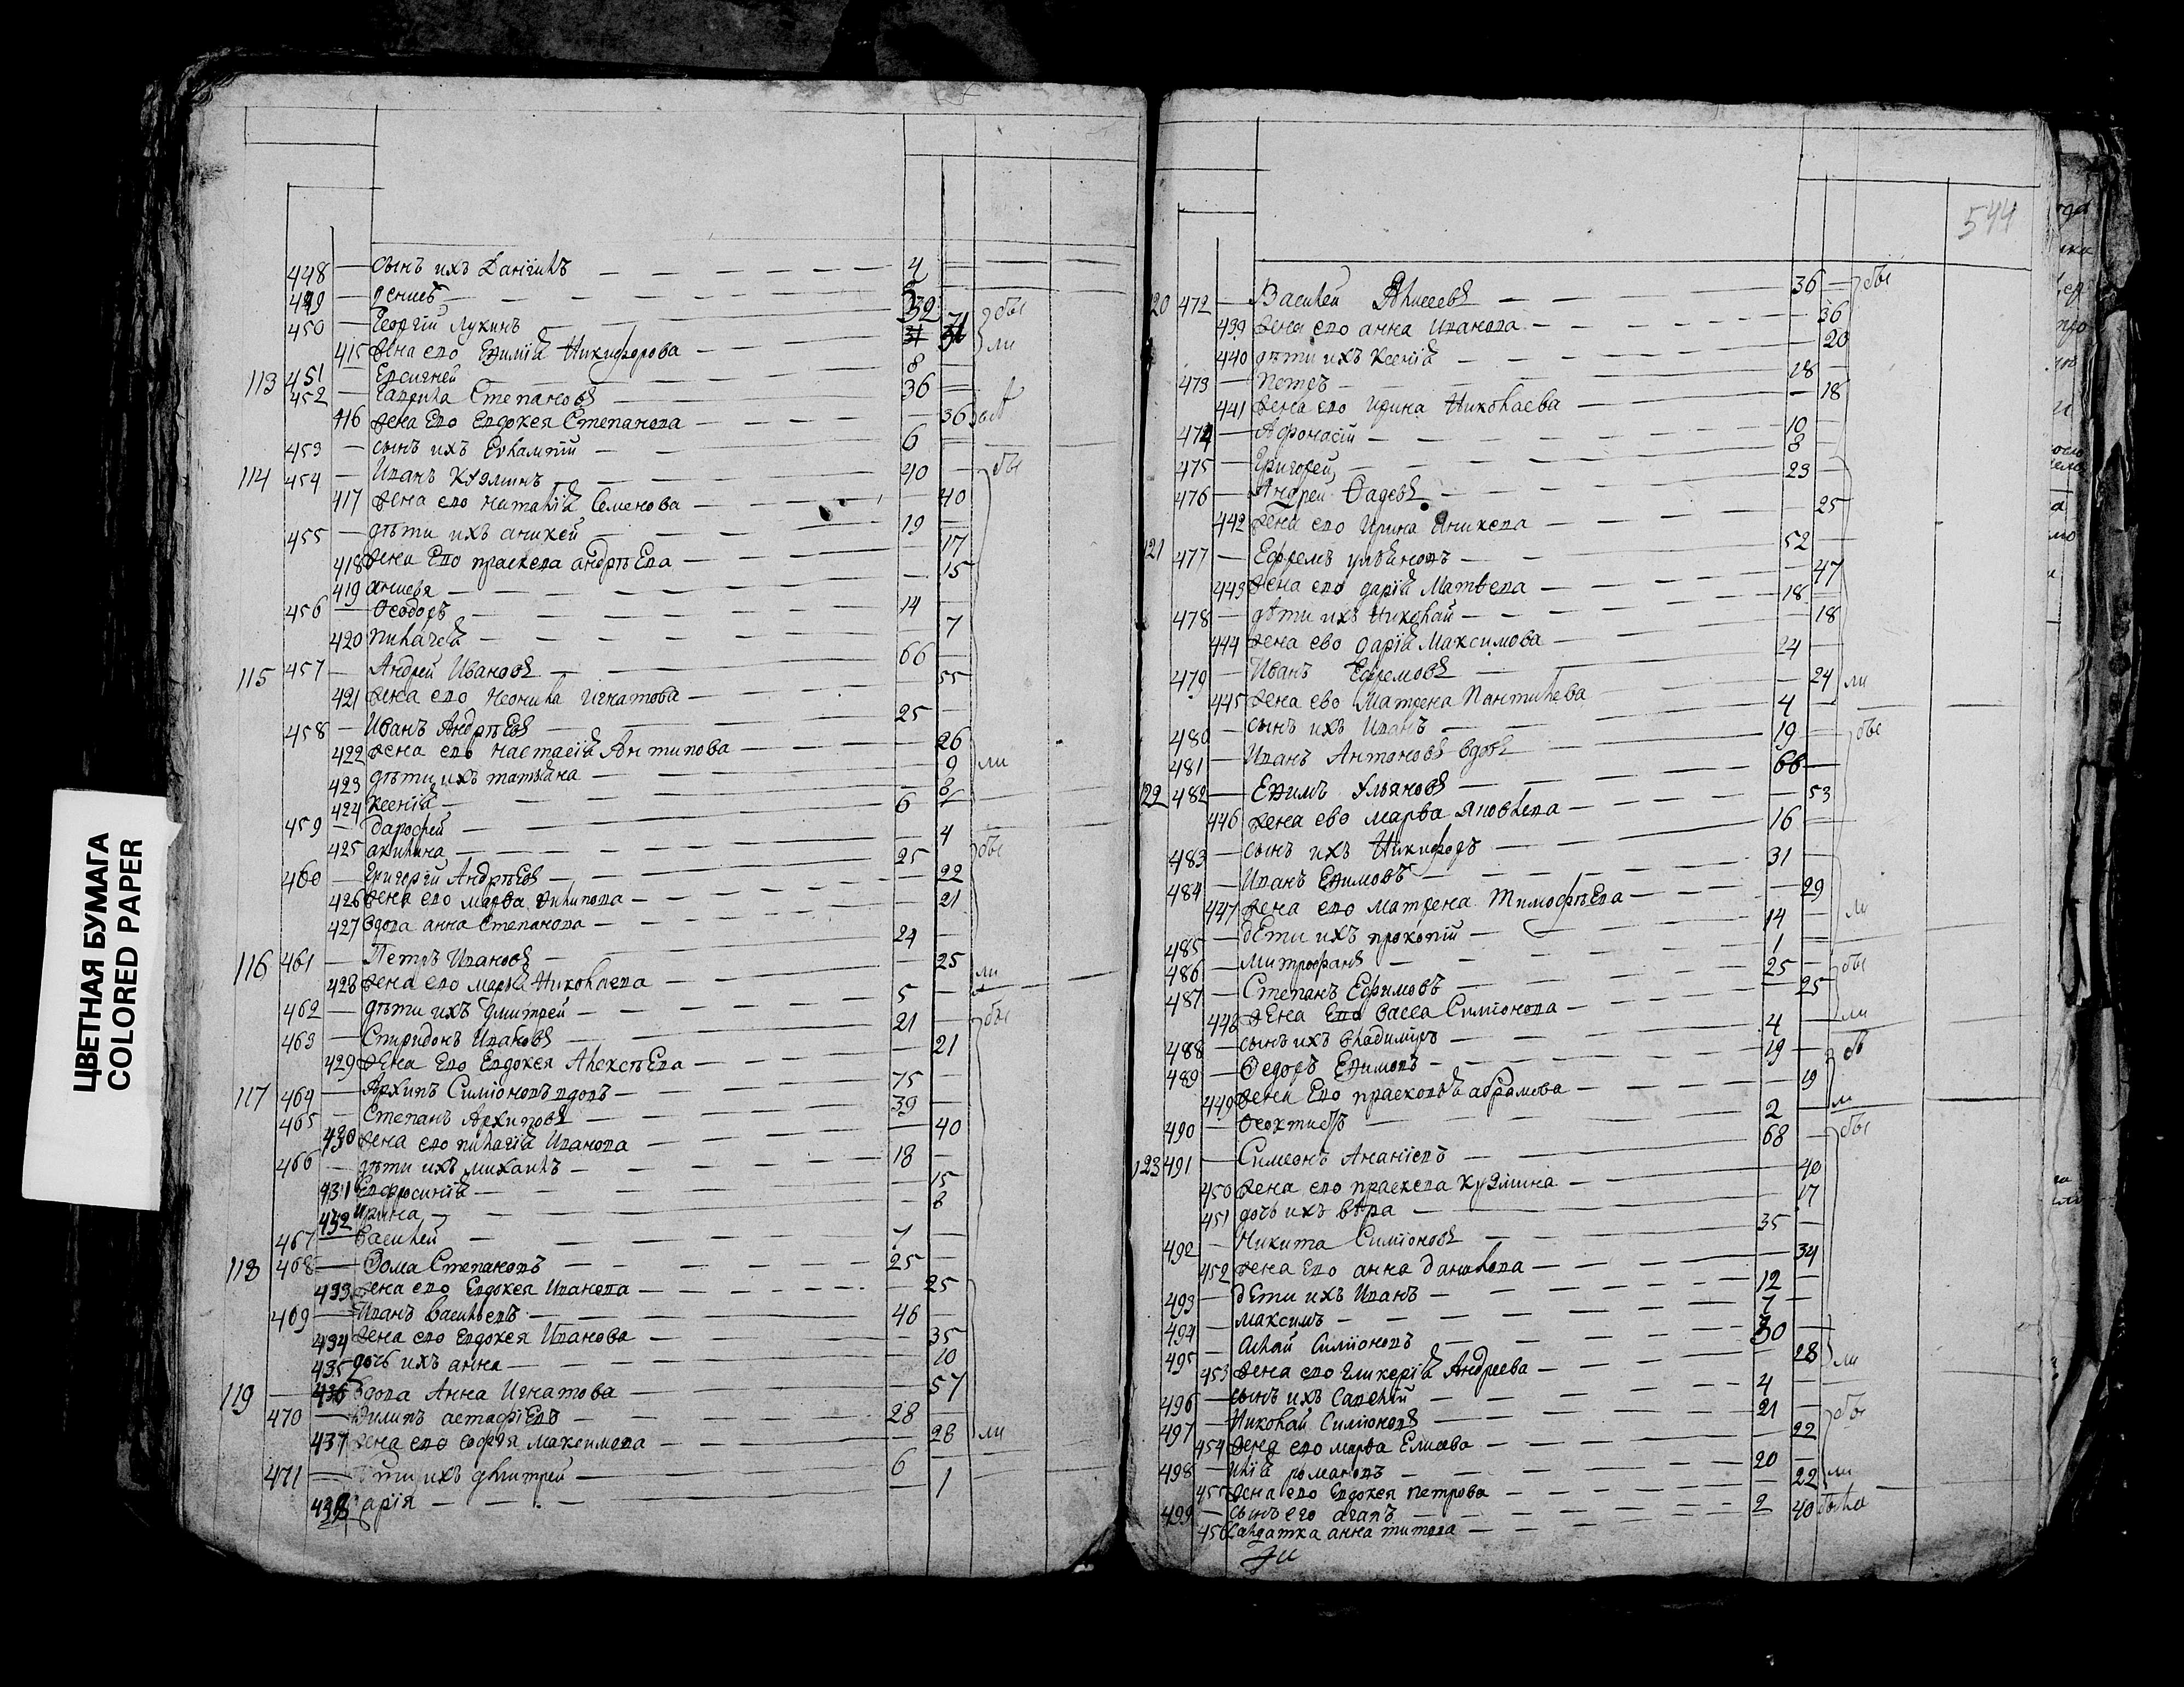 ЦВЕТНАЯ БУМАГА
COLORED PAPER
448 — сынъ ихъ Данiилъ — 4 —
449 — Денисъ —
450 — Георгiй Лукинъ — 32 бы
415 жена ево Ефимiя Никифорова — ли
113 451 — Евсигней — 8 —
452 — Гаврила Степановъ — 36 —
416 жена Ево Евдокея Степанова — 36
453 — сынъ ихъ Евлампiй — 6 —
114 454 — Иванъ Кузминъ — 40 — бы
417 жена ево Наталiя Семенова — 40
455 — дѣти ихъ аникей — 19 —
418 жена Ево праскева андрѣева — 17
419 анисья — 15
456 — Ѳеодоръ — 14 —
420 Пилагея — 7
115 457 — Андрей Ивановъ — 66 —
421 жена ево Неонила Игнатова — 55
458 — Иванъ Андрѣевъ — 25 —
422 жена ево Настасiя Антипова — 26
423 дѣти ихъ татьяна — 9 ли
424 Ксенiя — 8
459 — Дарофей — 6 —
425 акилина — 4 бы
460 — Григорiй Андрѣевъ — 25
426 жена ево марѳа Филипова — 22
427 вдова анна Степанова — 21
116 461 — Петръ Ивановъ — 24 —
428 жена ево марья Николаева — 25 ли
462 — дѣти ихъ Дмитрей — 5 —
463 — Спиридонъ Ивановъ — 21 — бы
429 жена Ево Евдокея Алексѣева — 21
117 464 — Архипъ Симiоновъ вдовъ — 75 —
465 — Степанъ Архиповъ — 39 —
430 жена ево пилагiя Иванова — 40
466 — дѣти ихъ михаилъ — 18 —
431 Евфросинiя — 15
432 Ирина — 8
467 — Василей — 7 —
118 468 — Ѳома Степановъ — 25 —
433 жена ево Евдокея Иванова — 25
469 — Иванъ Васильевъ — 46 —
434 жена ево Евдокея Иванова — 35
435 дочь ихъ анна — 10
119 — 436 вдова Анна Игнатова — 57
470 — Филипъ астафiевъ — 28 —
437 жена ево софья максимова — 28 ли
471 — Дѣти ихъ дмитрей — 6 —
438 Дарiя — 1
544
120 472 — Василей Алисеевъ — 36 — бы
439 жена ево анна Иванова — 36
440 дѣти ихъ Ксенiя — 20
473 — Петръ — 18 —
441 жена ево Ирина Николаева — 18
474 — Афонасiй — 10 —
475 — Григорей — 8 —
476 — Андрей Фадеевъ — 23 —
442 жена ево Ирина Аникева — 25
121 477 — Ефремъ ульяновъ — 52 —
443 жена ево дарiя Матвева — 47
478 — дѣти ихъ Николай — 18 —
444 жена ево дарiя Максимова — 18
479 — Иванъ Ефремовъ — 24 —
445 жена ево Матрена Пантилева — 24 ли
480 — сынъ ихъ Иванъ — 4 —
481 — Иванъ Антоновъ вдовъ — 19 — бы
122 482 — Ефимъ Ульяновъ — 66 —
446 жена ево марѳа Яковлева — 53
483 — сынъ ихъ Никифоръ — 16 —
484 — Иванъ Ефимовъ — 31 —
447 жена ево матрена Тимофѣева — 29
485 — дѣти ихъ прокопiй — 14 — ли
486 — митрофанъ — 1 —
487 — Степанъ Ефимовъ — 25 — бы
448 жена Ево васса Симiонова — 25
488 — сынъ ихъ владимиръ — 4 — ли
489 — Ѳедоръ Ефимовъ — 19 —
449 жена Ево прасковья абрамова — 19
490 — Ѳеоктистъ — 2 — ли
123 491 — Симеонъ Ананiевъ — 68 — бы
450 жена ево праскева Кузмина — 40
451 дочь ихъ вѣра — 17
492 — Никита Симiоновъ — 35 —
452 жена Ево анна данилова — 34
493 — дѣти ихъ Иванъ — 12 —
494 — максимъ — 7 —
495 — Симiоновъ — 30 —
453 жена ево гликерiя Андреева — 28 ли
496 — сынъ ихъ Савелiй — 4 —
497 — Николай Симiоновъ — 21 — бы
454 жена ево марѳа Елисева — 22
498 — Илiя романовъ — 20 —
455 жена ево Евдокея петрова — 22 ли
499 — сынъ его агапъ — 2 —
456 салдатка анна титова — 40 была